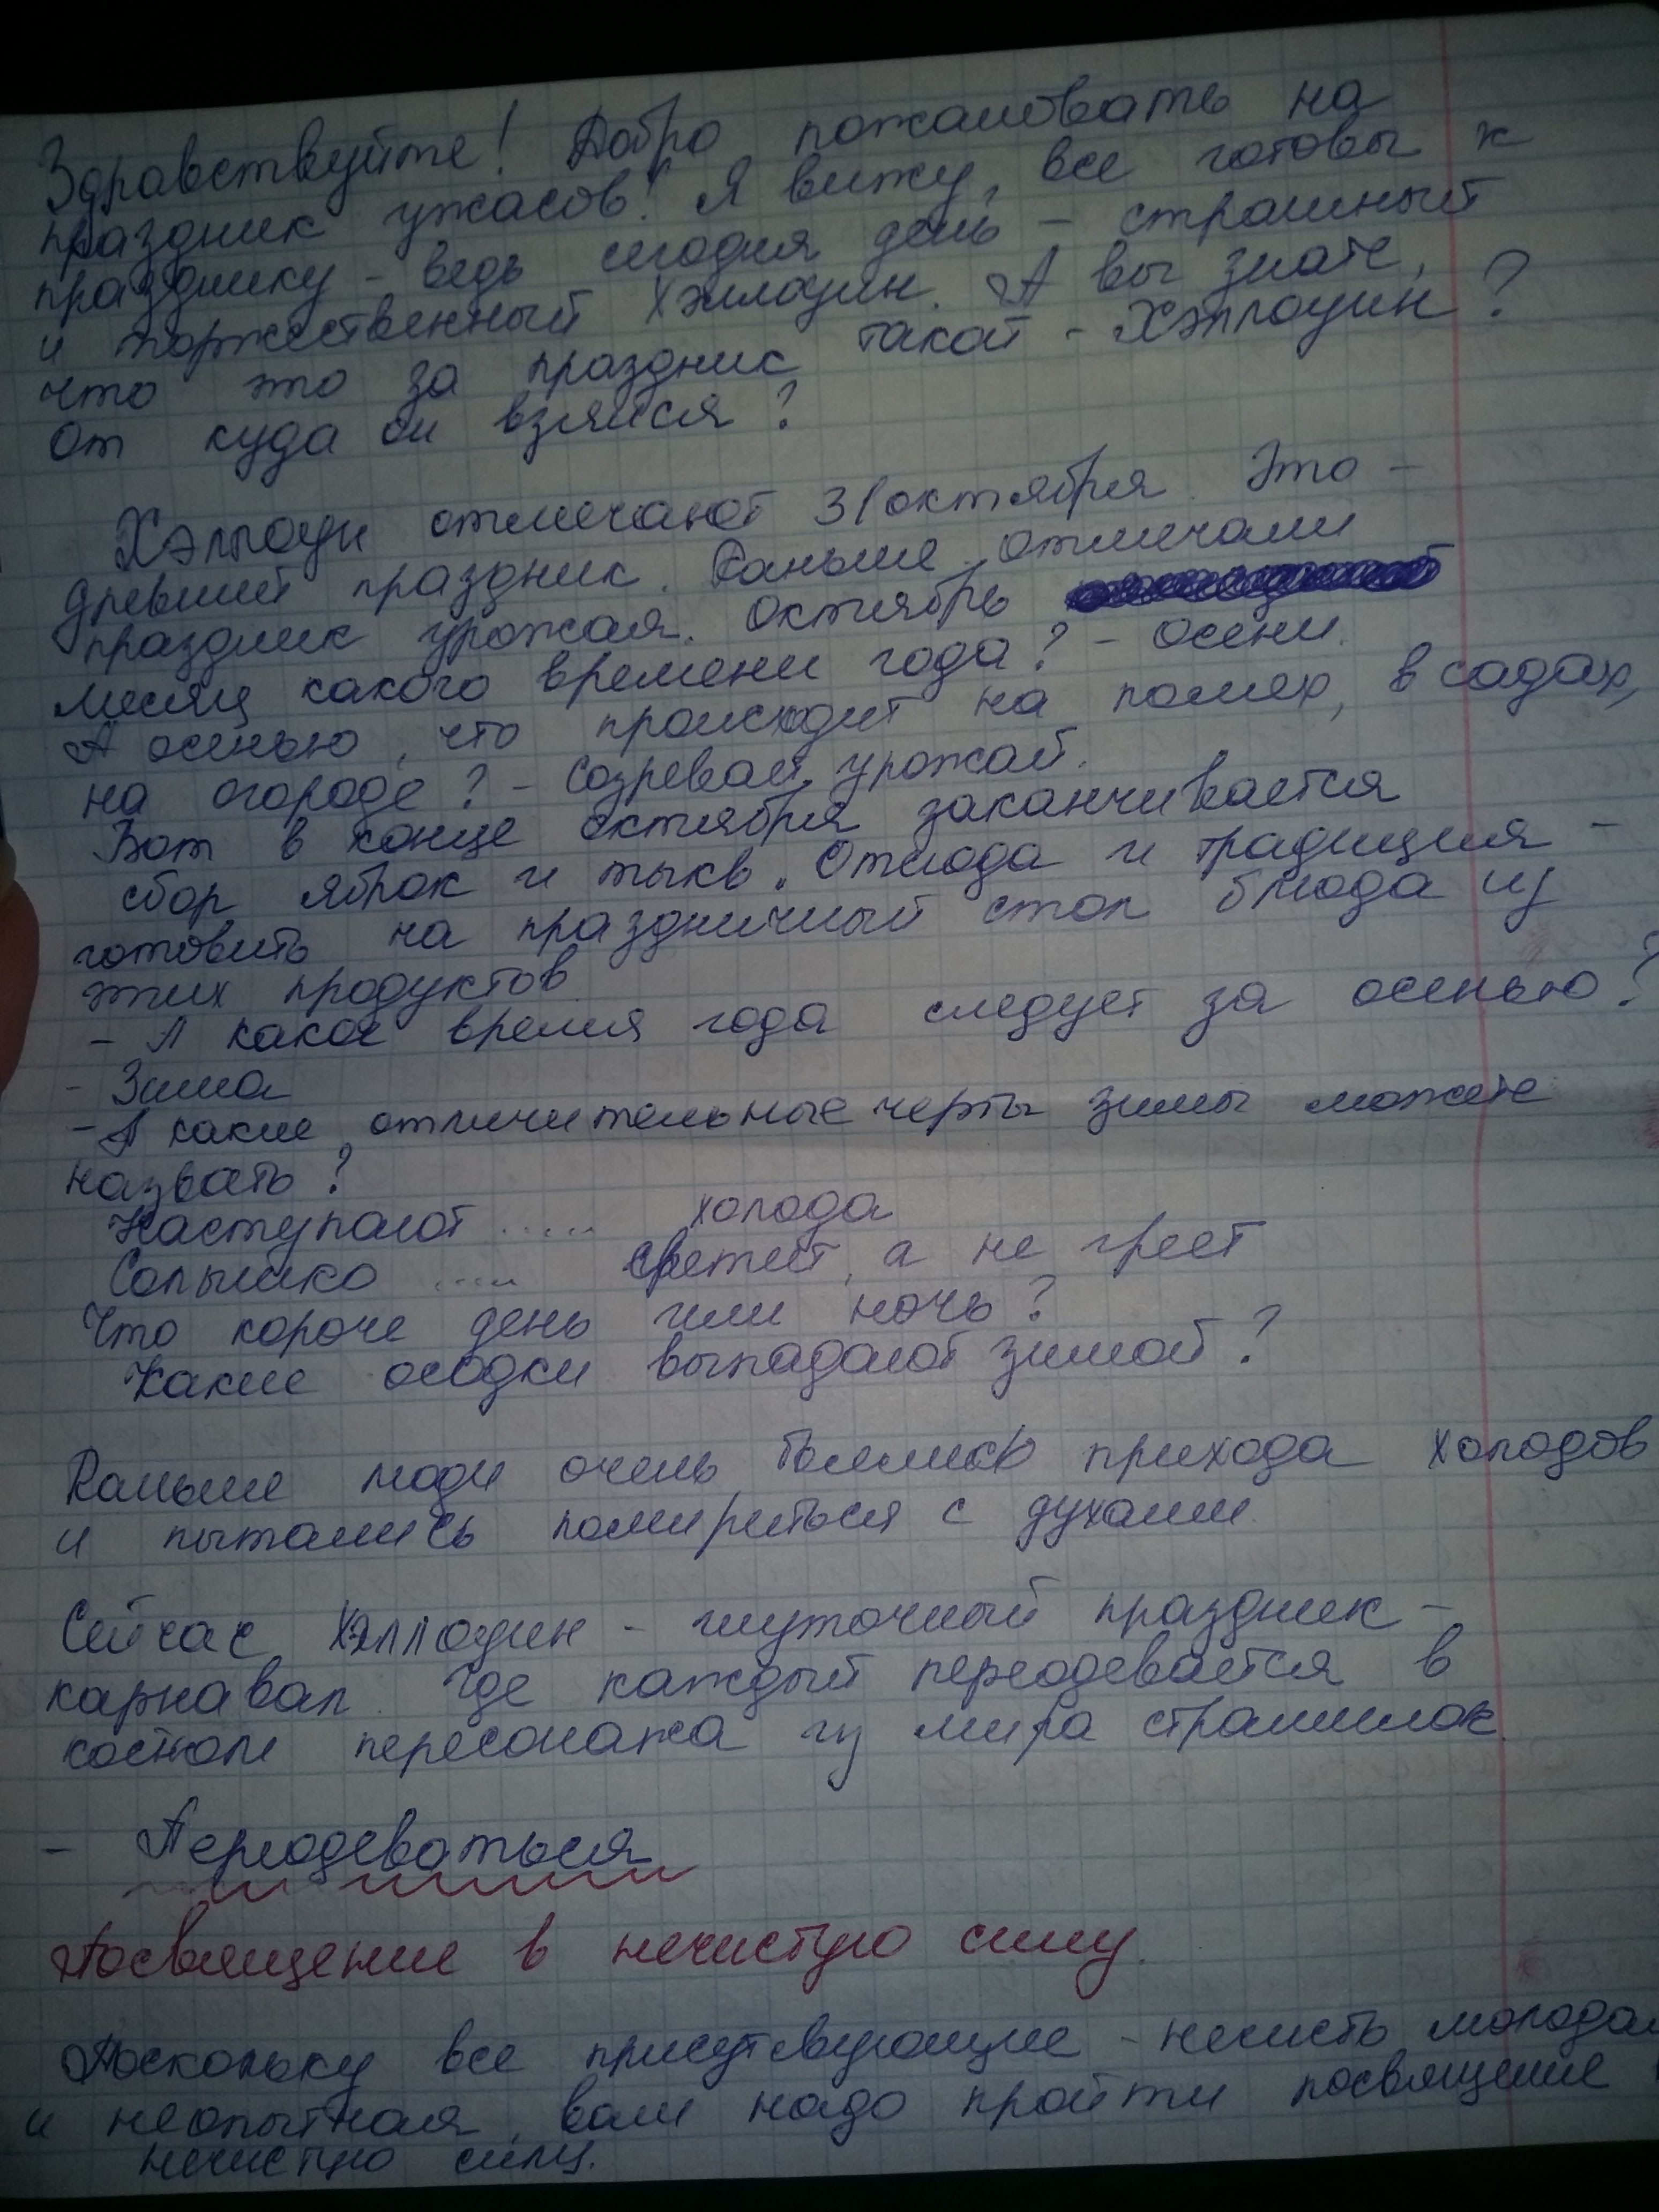 Здравствуйте! Добро пожаловать на
праздник ужасов! Я вижу, все готовы к
празднику - ведь сегодня день - страшный
и торжественный Хэллоуин. А вы знате,
что это за праздник такой - Хэллоуин?
От куда он взялся?
Хэллоуин отмечают 31 октября. Это -
древний праздник. Раньше отмечали
праздник урожая. Октябрь
месяц какого времени года? - осени.
А осенью, что происходит на полях, в садах,
на огороде? - Созревает урожай.
Вот в конце октября заканчивается
сбор яблок и тыкв. Отсюда и традиция -
готовить на праздничный стол блюда из
этих продуктов
- А какое время года следует за осенью?
- Зима
- А какие отличительные черты зимы можете
назвать?
Наступают ..... холода
Солнышко ..... светит, а не греет
Что короче день или ночь?
Какие осадки выпадают зимой?
Раньше люди очень боялись прихода холодов
и пытались помириться с духами.
Сейчас Хэллоуин - шуточный праздник -
карнавал. Где каждый переодевается в
костюм персонажа из мира страшилок.
- Переодеваться
Посвящение в нечистую силу.
Поскольку все присутствующие - нечисть молодая
и неопытная, вам надо пройти посвящение
нечистую силу.